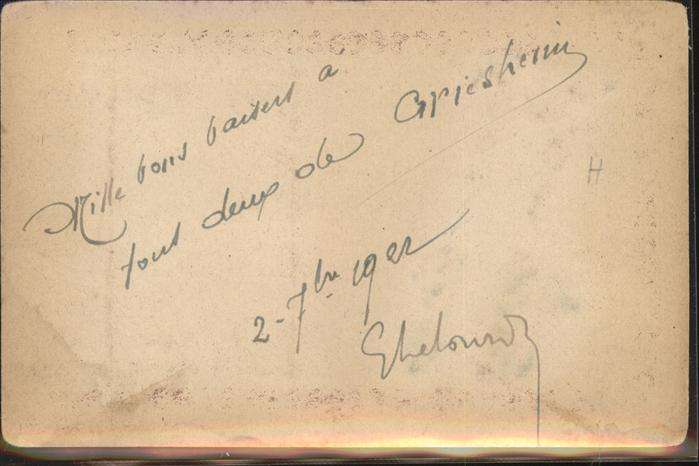 Mille bons baisers à
tous deux de Griesheim
H
2-7bre 1922